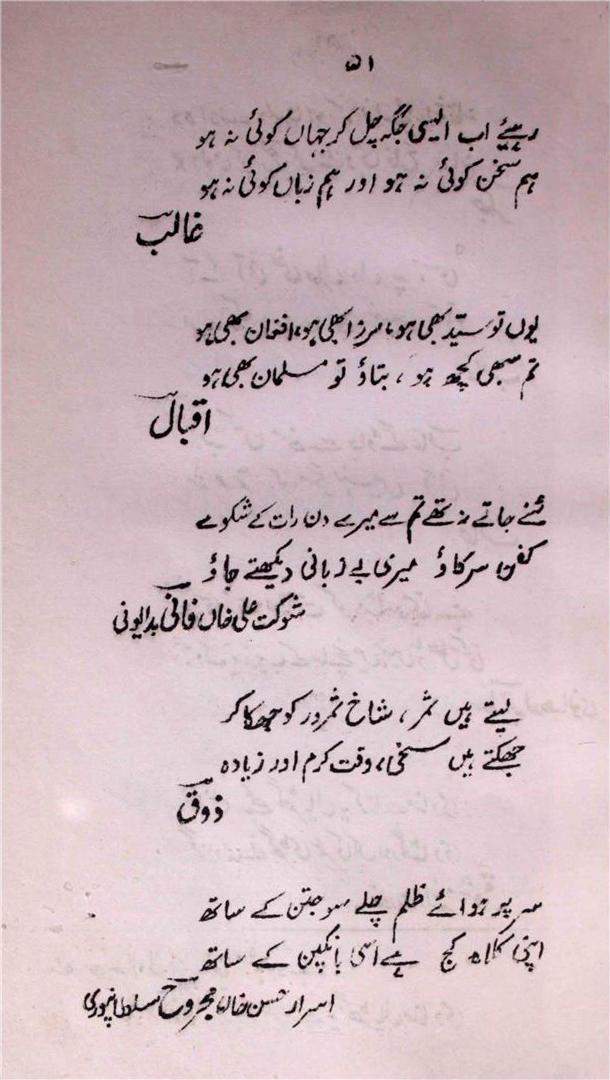 ۵۱
رہیئے اب ایسی جگہ چل کر جہاں کوئی نہ ہو
ہم سخن کوئی نہ ہو اور ہم زباں کوئی نہ ہو
غالب
یوں تو سیّد بھی ہو، مرزا بھی ہو، افغان بھی ہو
تم سبھی کچھ ہو، بتاؤ تو مسلمان بھی ہو
اقبال
سُنے جاتے نہ تھے تم سے میرے دن رات کے شکوے
کفن سرکاؤ میری بے زبانی دیکھتے جاؤ
شوکت علی خاں فانی بدایونی
لیتے ہیں ثمر، شاخ ثمرور کو جھکا کر
جھکتے ہیں سخی، وقت کرم اور زیادہ
ذوق
سر پر ہوائے ظلم چلے سو جتن کے ساتھ
اپنی کلاہ کج ہے اسی بانکپن کے ساتھ
اسرار حسن خاں مجروح سلطانپوری